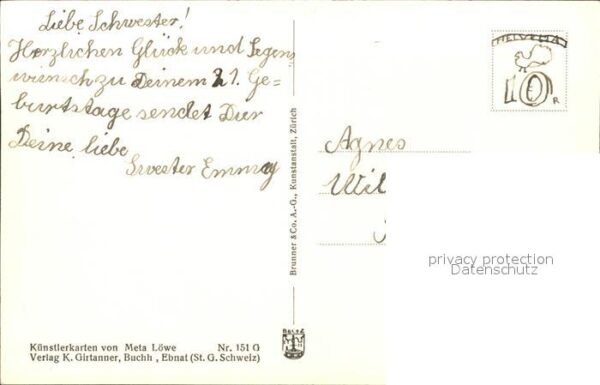 Liebe Schwester!
Herzlichen Glück und Segens
wunsch zu Deinem 21. Ge-
burtstage sendet Dir
Deine liebe
Swester Emmy
HELVETIA
10 R
Agnes
Brunner & Co. A.-G., Kunstanstalt, Zürich
privacy protection
Datenschutz
Künstlerkarten von Meta Löwe Nr. 151 G
Verlag K. Girtanner, Buchh, Ebnat (St. G. Schweiz)